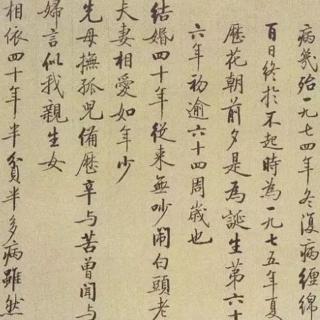 病幾殆一九七四年冬復病纏綿
百日終於不起時為一九七五年夏
歷花朝前夕是為誕生第六十
六年初逾六十四周歲也
結婚四十年從来無吵闹白頭老
夫妻相愛如年少
先母撫孤兒備歷辛与苦曾闻与
婦言似我親生女
相依四十年半貧半多病雖然